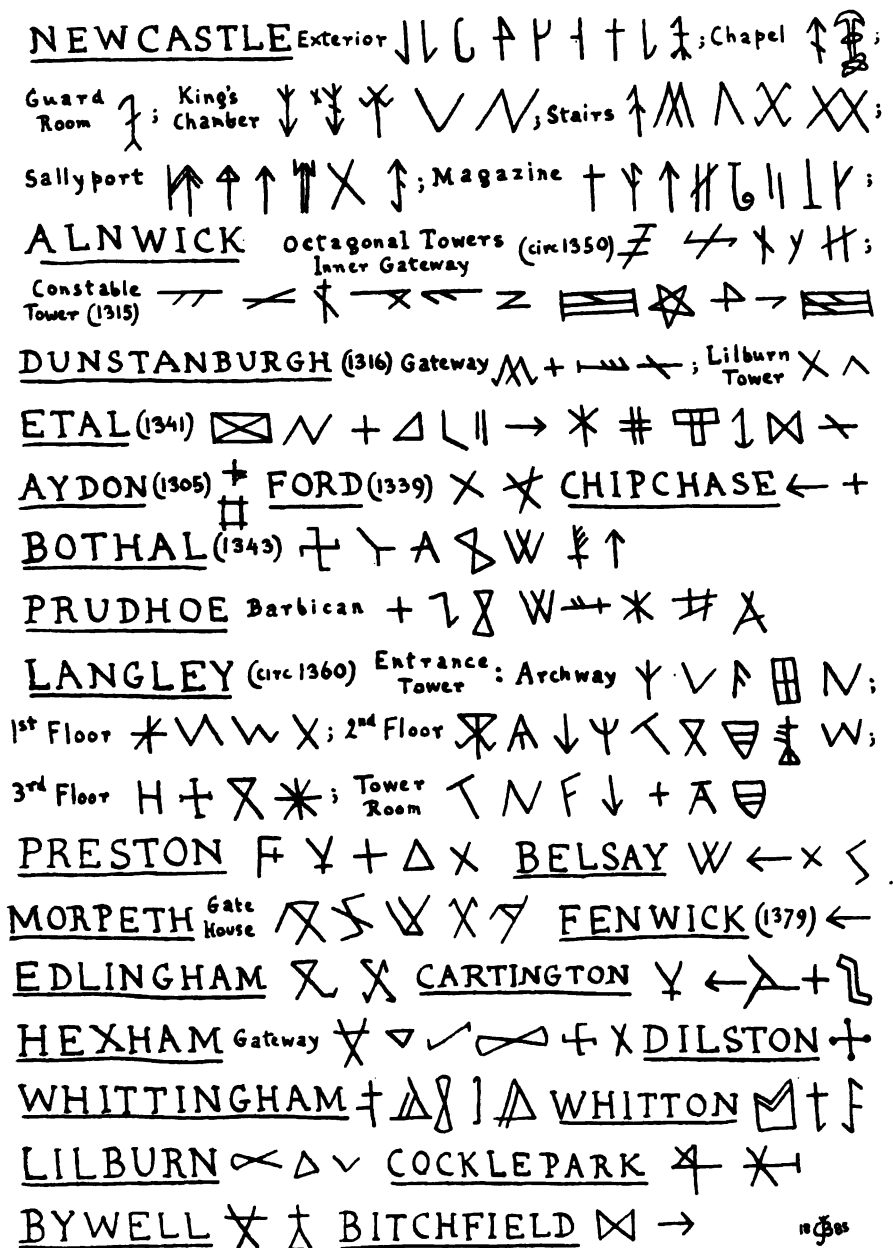 NEWCASTLE Exterior ; Chapel ;
Guard Room ; King's Chamber ; Stairs ;
Sallyport ; Magazine ;
ALNWICK Octagonal Towers Inner Gateway (circ 1350) ;
Constable Tower (1315)
DUNSTANBURGH (1316) Gateway ; Lilburn Tower
ETAL (1341)
AYDON (1305) FORD (1339) CHIPCHASE
BOTHAL (1343)
PRUDHOE Barbican
LANGLEY (circ 1360) Entrance Tower : Archway ;
1st Floor ; 2nd Floor ;
3rd Floor ; Tower Room
PRESTON BELSAY
MORPETH Gate House FENWICK (1379)
EDLINGHAM CARTINGTON
HEXHAM Gateway DILSTON
WHITTINGHAM WHITTON
LILBURN COCKLEPARK
BYWELL BITCHFIELD 18 85